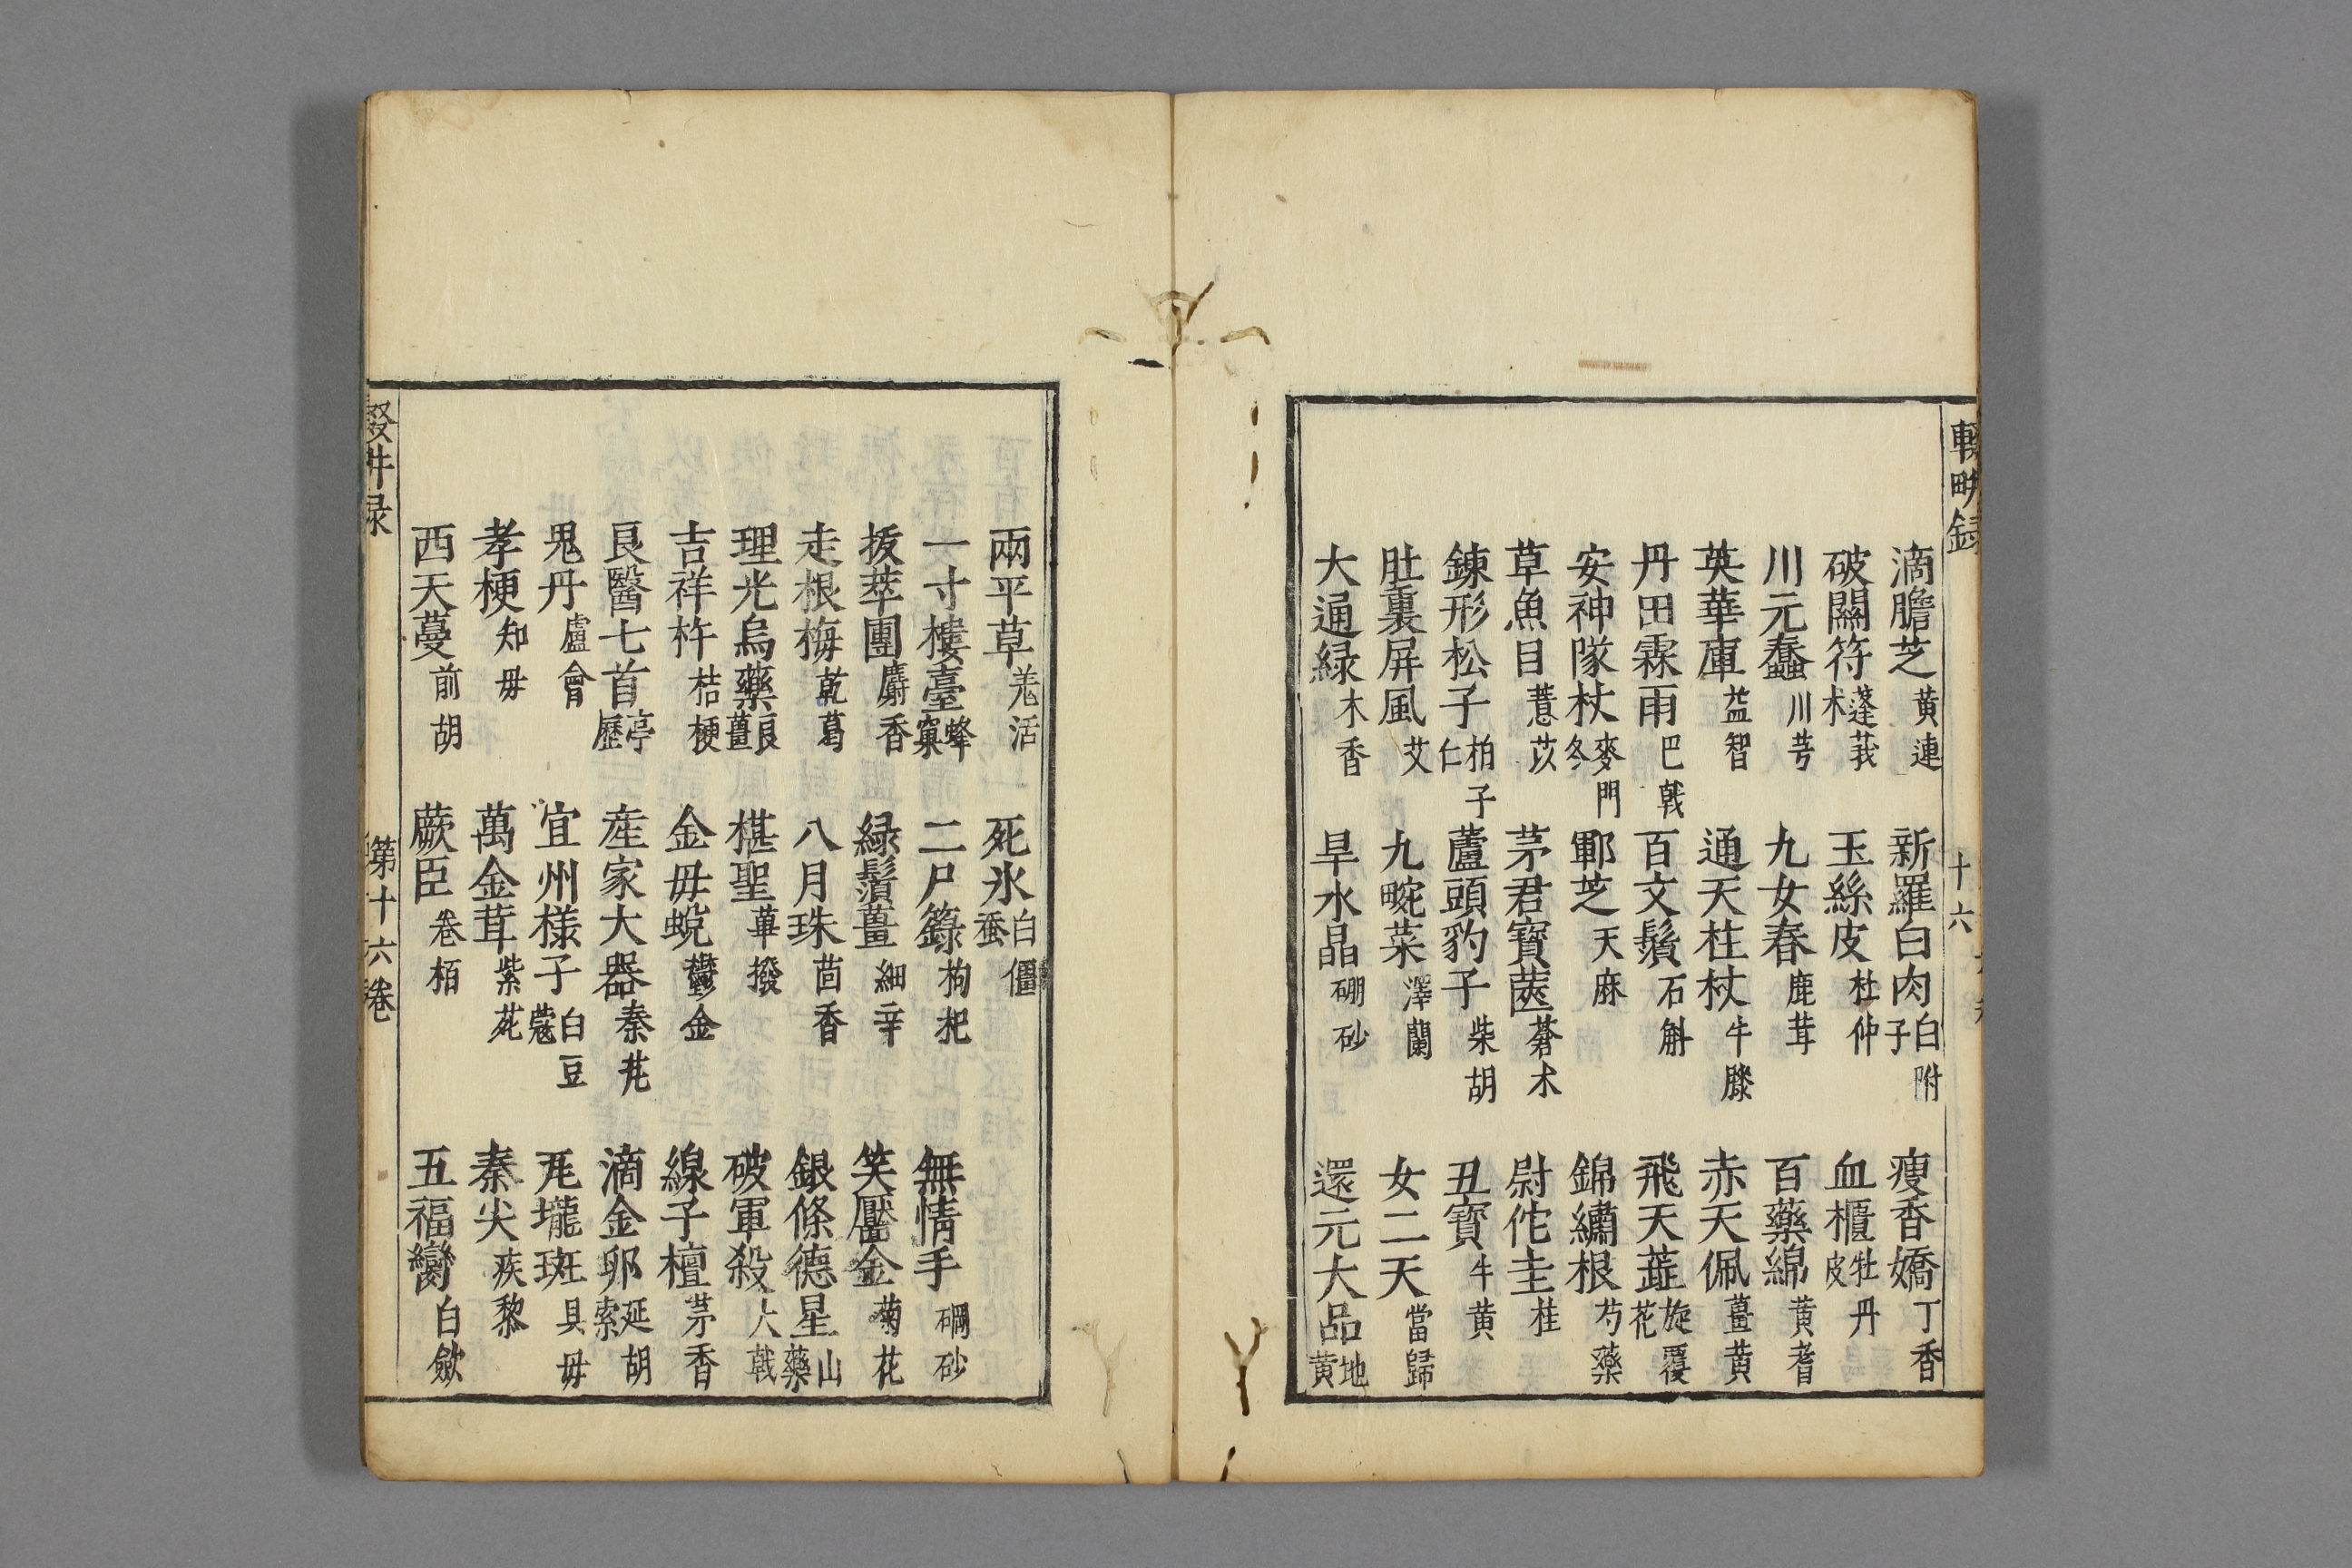 輟畊録
十六
滴膽芝 黄連 新羅白肉 白附子 瘦香嬌 丁香
破關符 蓬莪术 玉絲皮 杜仲 血櫃 牡丹皮
川元蠢 川芎 九女春 鹿茸 百藥綿 黄耆
英華庫 益智 通天柱杖 牛膝 赤天佩 薑黄
丹田霖雨 巴戟 百丈鬚 石斛 飛天蕋 旋覆花
安神隊杖 麥門冬 鄆芝 天麻 錦繡根 芍藥
草魚目 薏苡 茅君寶篋 蒼术 尉佗圭 桂
錬形松子 柏子仁 蘆頭豹子 柴胡 丑寶 牛黄
肚裏屏風 艾 九畹菜 澤蘭 女二天 當歸
大通緑 木香 旱水晶 硼砂 還元大品 地黄
兩平草 羗活 死氷 白僵蚕
一寸樓臺 蜂窠 二尸籙 枸杞 無情手 硇砂
拔萃團 麝香 緑鬚薑 細辛 笑靨金 菊花
走根梅 乾葛 八月珠 茴香 銀條德星 山藥
理光烏藥 良薑 椹聖 蓽撥 破軍殺 大戟
吉祥杵 桔梗 金毋蛻 鬱金 線子檀 茅香
良醫七首 亭歷 産家大器 秦艽 滴金卵 延胡索
鬼丹 盧會 宜州樣子 白豆蔻 兎壠斑 具毋
孝梗 知毋 萬金茸 紫菀 秦尖 疾黎
西天蔓 前胡 蕨臣 卷栢 五福臠 白歛
輟畊录
第十六卷